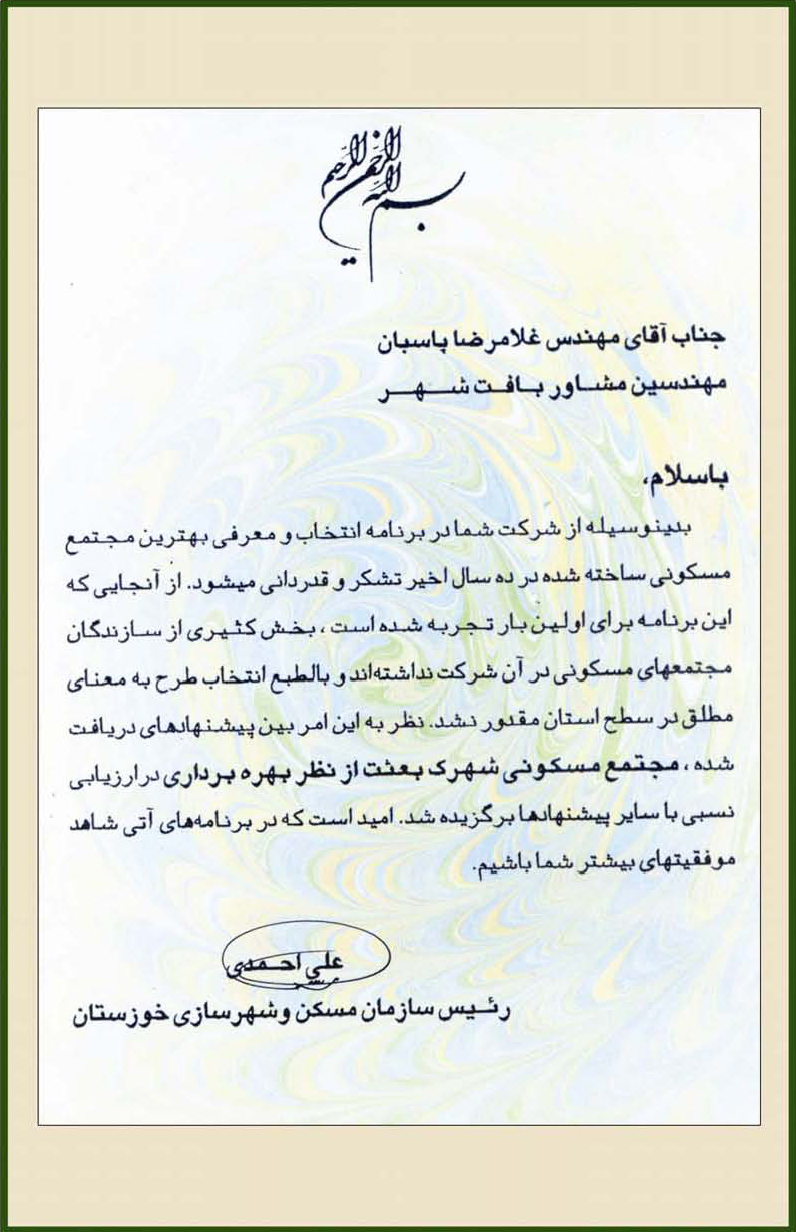 بسم الله الرحمن الرحیم
جناب آقای مهندس غلامرضا پاسبان
مهندسین مشاور بافت شهر
باسلام،
بدینوسیله از شرکت شما در برنامه انتخاب و معرفی بهترین مجتمع
مسکونی ساخته شده در ده سال اخیر تشکر و قدردانی میشود. از آنجایی که
این برنامه برای اولین بار تجربه شده است ، بخش کثیری از سازندگان
مجتمعهای مسکونی در آن شرکت نداشته‌اند و بالطبع انتخاب طرح به معنای
مطلق در سطح استان مقدور نشد. نظر به این امر بین پیشنهادهای دریافت
شده ، مجتمع مسکونی شهرک بعثت از نظر بهره برداری در ارزیابی
نسبی با سایر پیشنهادها برگزیده شد. امید است که در برنامه‌های آتی شاهد
موفقیتهای بیشتر شما باشیم.
علی احمدی
رئیس سازمان مسکن و شهرسازی خوزستان